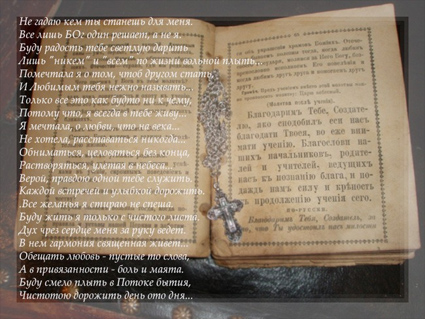 Не гадаю кем ты станешь для меня.
Все лишь БОг один решает, а не я.
Буду радость тебе светлую дарить
Лишь "никем" и "всем" по жизни вольной плыть...
Помечтала я о том, чтоб другом стать,
И Любимым тебя нежно называть...
Только все это как будто ни к чему,
Потому что, я всегда в тебе живу...
Я мечтала, о любви, что на века...
Не хотела, расставаться никогда...
Обниматься, целоваться без конца,
Растворяться, улетая в небеса...
Верой, правдою одной тебе служить.
Каждой встречей и улыбкой дорожить.
.Все желанья я стираю не спеша.
Буду жить я только с чистого листа.
Дух чрез сердце меня за руку ведет.
В нем гармония священная живет...
Обещать любовь - пустые то слова,
А в привязанности - боль и маята.
Буду смело плыть в Потоке бытия,
Чистотою дорожить день ото дня...
Благодаримъ Тебе, Создате-
лю, яко сподобилъ еси насъ
благодати Твоея, во еже вни-
мати ученію. Благослови на-
шихъ начальниковъ, родите-
лей и учителей, ведущихъ
насъ къ познанію блага, и по-
даждь намъ силу и крѣпость
къ продолженію ученія сего.